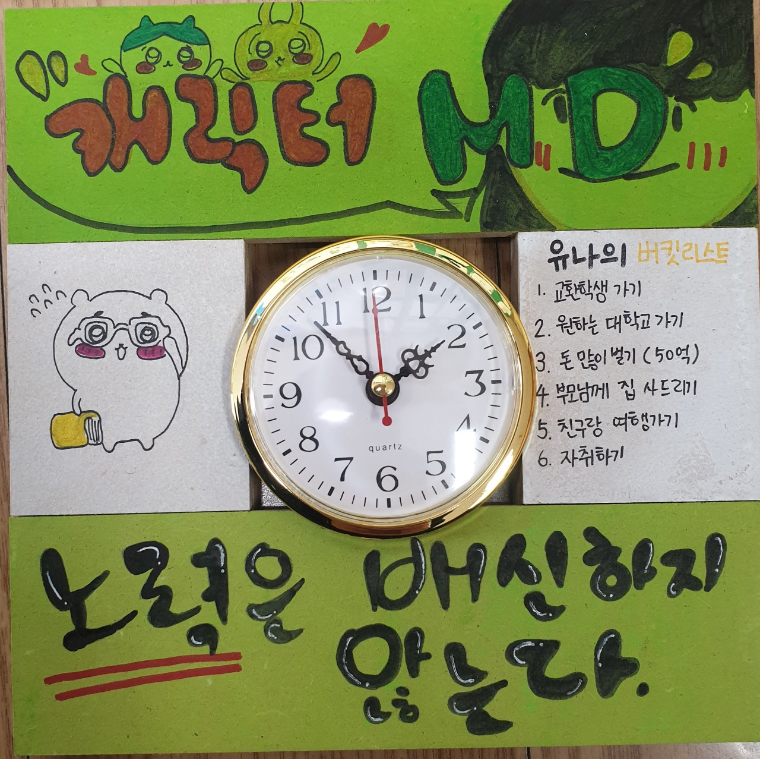 캐릭터 MD
유나의 버킷리스트
1. 교환학생 가기
2. 원하는 대학교 가기
3. 돈 많이 벌기 (50억)
4. 부모님께 집 사드리기
5. 친구랑 여행가기
6. 자취하기
12
1
2
3
4
5
6
7
8
9
10
11
quartz
노력은 배신하지
않는다.